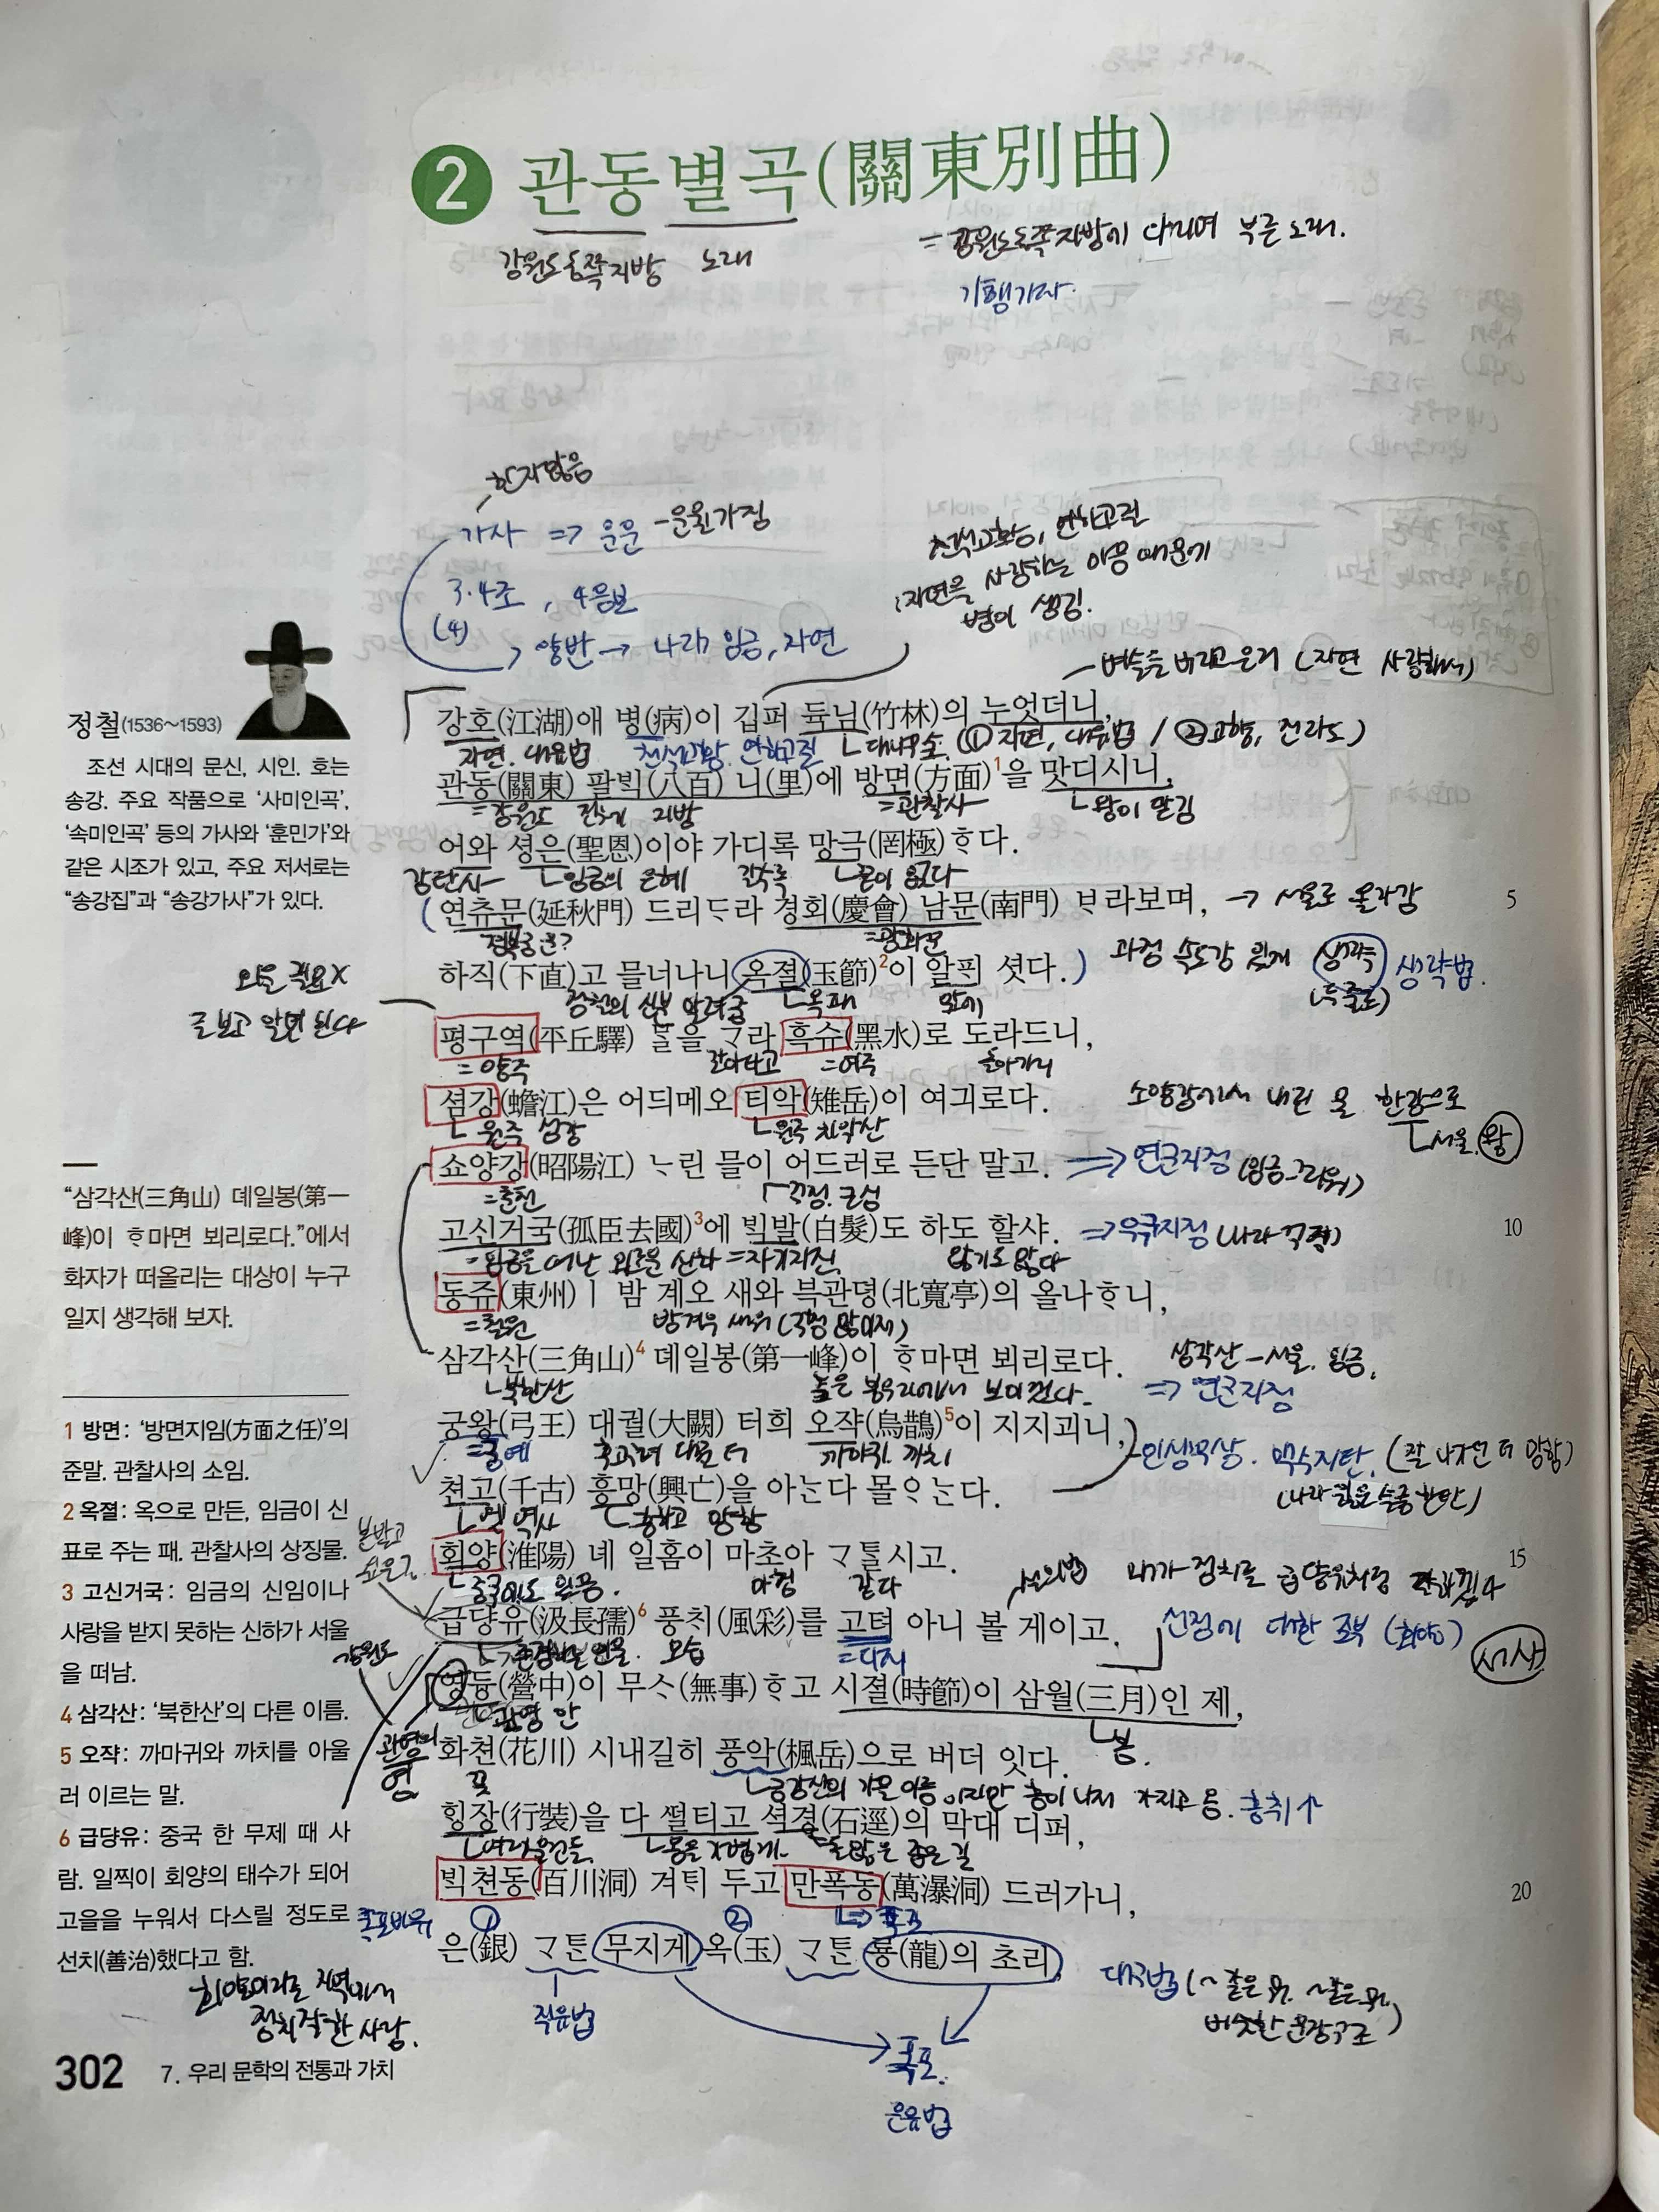 2 관동별곡(關東別曲)
강원도동쪽지방 노래
= 강원도동쪽지방에 다니며 부른 노래.
기행가사.
한자많음
가사 => 운문 - 운율가짐
3·4조, 4음보
(4)
양반 → 나라, 임금, 자연
천석고황, 연하고질
:자연을 사랑하는 마음 때문에
병이 생김.
벼슬을 버리고 은거 (자연 사랑해서)
정철(1536~1593)
조선 시대의 문신, 시인. 호는
송강. 주요 작품으로 ‘사미인곡’,
‘속미인곡’ 등의 가사와 ‘훈민가’와
같은 시조가 있고, 주요 저서로는
“송강집”과 “송강가사”가 있다.
강호(江湖)애 병(病)이 깁퍼 듁님(竹林)의 누엇더니,
자연. 대유법 천석고황. 연하고질 대나무숲. (① 자연, 대유법 / ② 고향, 전라도)
관동(關東) 팔ᄇᆡᆨ(八百) 니(里)에 방면(方面)1을 맛디시니,
=강원도 지방 =관찰사 왕이 맡김
어와 셩은(聖恩)이야 가디록 망극(罔極)ᄒᆞ다.
감탄사 임금의 은혜 갈수록 끝이 없다
(연츄문(延秋門) 드리ᄃᆞ라 경회(慶會) 남문(南門) ᄇᆞ라보며, → 서울로 올라감
5
경복궁 =광화문
하직(下直)고 믈너나니 옥졀(玉節)2이 알ᄑᆡ 셧다.) 과정 속도감 있게 생략 생략법.
정철의 신분 알려줌 옥패 앞에
외울 필요X
글 보고 알면 된다
평구역(平丘驛) ᄆᆞᆯ을 ᄀᆞ라 흑슈(黑水)로 도라드니,
=양주 갈아타고 =여주 돌아가니
셤강(蟾江)은 어듸메오 티악(雉岳)이 여긔로다.
원주 섬강 원주 치악산
소양강에서 내린 물 한강으로
서울. 왕
쇼양강(昭陽江) ᄂᆞ린 믈이 어드러로 든단 말고. => 연군지정 (임금 그리워)
=춘천 걱정. 근심
고신거국(孤臣去國)3에 ᄇᆡᆨ발(白髮)도 하도 할샤. => 우국지정 (나라 걱정)
10
=임금을 떠난 외로운 신하 =자기자신 많기도 많다
동쥬(東州)ㅣ 밤 계오 새와 븍관뎡(北寬亭)의 올나ᄒᆞ니,
=철원 밤 겨우 새워 (걱정 많아서)
삼각산(三角山)4 뎨일봉(第一峰)이 ᄒᆞ마면 뵈리로다. 삼각산 - 서울. 임금.
북한산 높은 봉우리에서 보이겠다. => 연군지정
궁왕(弓王) 대궐(大闕) 터희 오쟉(烏鵲)5이 지지괴니,
=궁예 까마귀. 까치 인생무상. 맥수지탄.
쳔고(千古) 흥망(興亡)을 아ᄂᆞᆫ다 몰ᄋᆞᄂᆞᆫ다.
옛 역사 흥하고 망함
회양(淮陽) 녜 일홈이 마초아 ᄀᆞᄐᆞᆯ시고.
15
마침 같다 설의법 내가 정치를 급장유처럼
급댱유(汲長孺)6 풍ᄎᆡ(風彩)를 고텨 아니 볼 게이고. 선정에 대한 포부
모습 =다시 서사
강원도
영듕(營中)이 무ᄉᆞ(無事)ᄒᆞ고 시졀(時節)이 삼월(三月)인 제,
감영 안 봄.
화쳔(花川) 시내길히 풍악(楓岳)으로 버더 잇다.
꽃 금강산의 가을 이름 흥취↑
ᄒᆡᆼ장(行裝)을 다 ᄯᅥᆯ티고 셕경(石逕)의 막대 디퍼,
몸을 가볍게 돌 많은 좁은 길
ᄇᆡᆨ쳔동(百川洞) 겨ᄐᆡ 두고 만폭동(萬瀑洞) 드러가니,
20
① ② => 폭포
은(銀) ᄀᆞᄐᆞᆫ 무지게 옥(玉) ᄀᆞᄐᆞᆫ 룡(龍)의 초리
직유법 대구법
비슷한 문장구조
폭포.
은유법
“삼각산(三角山) 뎨일봉(第一
峰)이 ᄒᆞ마면 뵈리로다.”에서
화자가 떠올리는 대상이 누구
일지 생각해 보자.
1 방면: ‘방면지임(方面之任)’의
준말. 관찰사의 소임.
2 옥졀: 옥으로 만든, 임금이 신
표로 주는 패. 관찰사의 상징물.
3 고신거국: 임금의 신임이나
사랑을 받지 못하는 신하가 서울
을 떠남.
4 삼각산: ‘북한산’의 다른 이름.
5 오쟉: 까마귀와 까치를 아울
러 이르는 말.
6 급댱유: 중국 한 무제 때 사
람. 일찍이 회양의 태수가 되어
고을을 누워서 다스릴 정도로
선치(善治)했다고 함.
회양이라는 지역에서
정치 잘한 사람.
302 7. 우리 문학의 전통과 가치